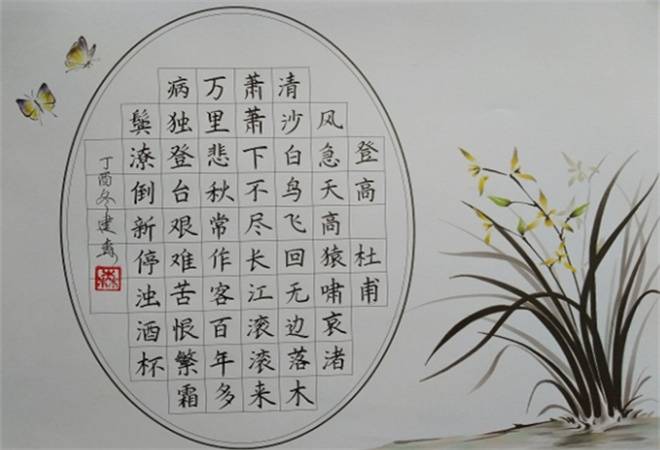 登高 杜甫
风急天高猿啸哀渚
清沙白鸟飞回无边落木
萧萧下不尽长江滚滚来
万里悲秋常作客百年多
病独登台艰难苦恨繁霜
鬓潦倒新停浊酒杯
丁酉冬建